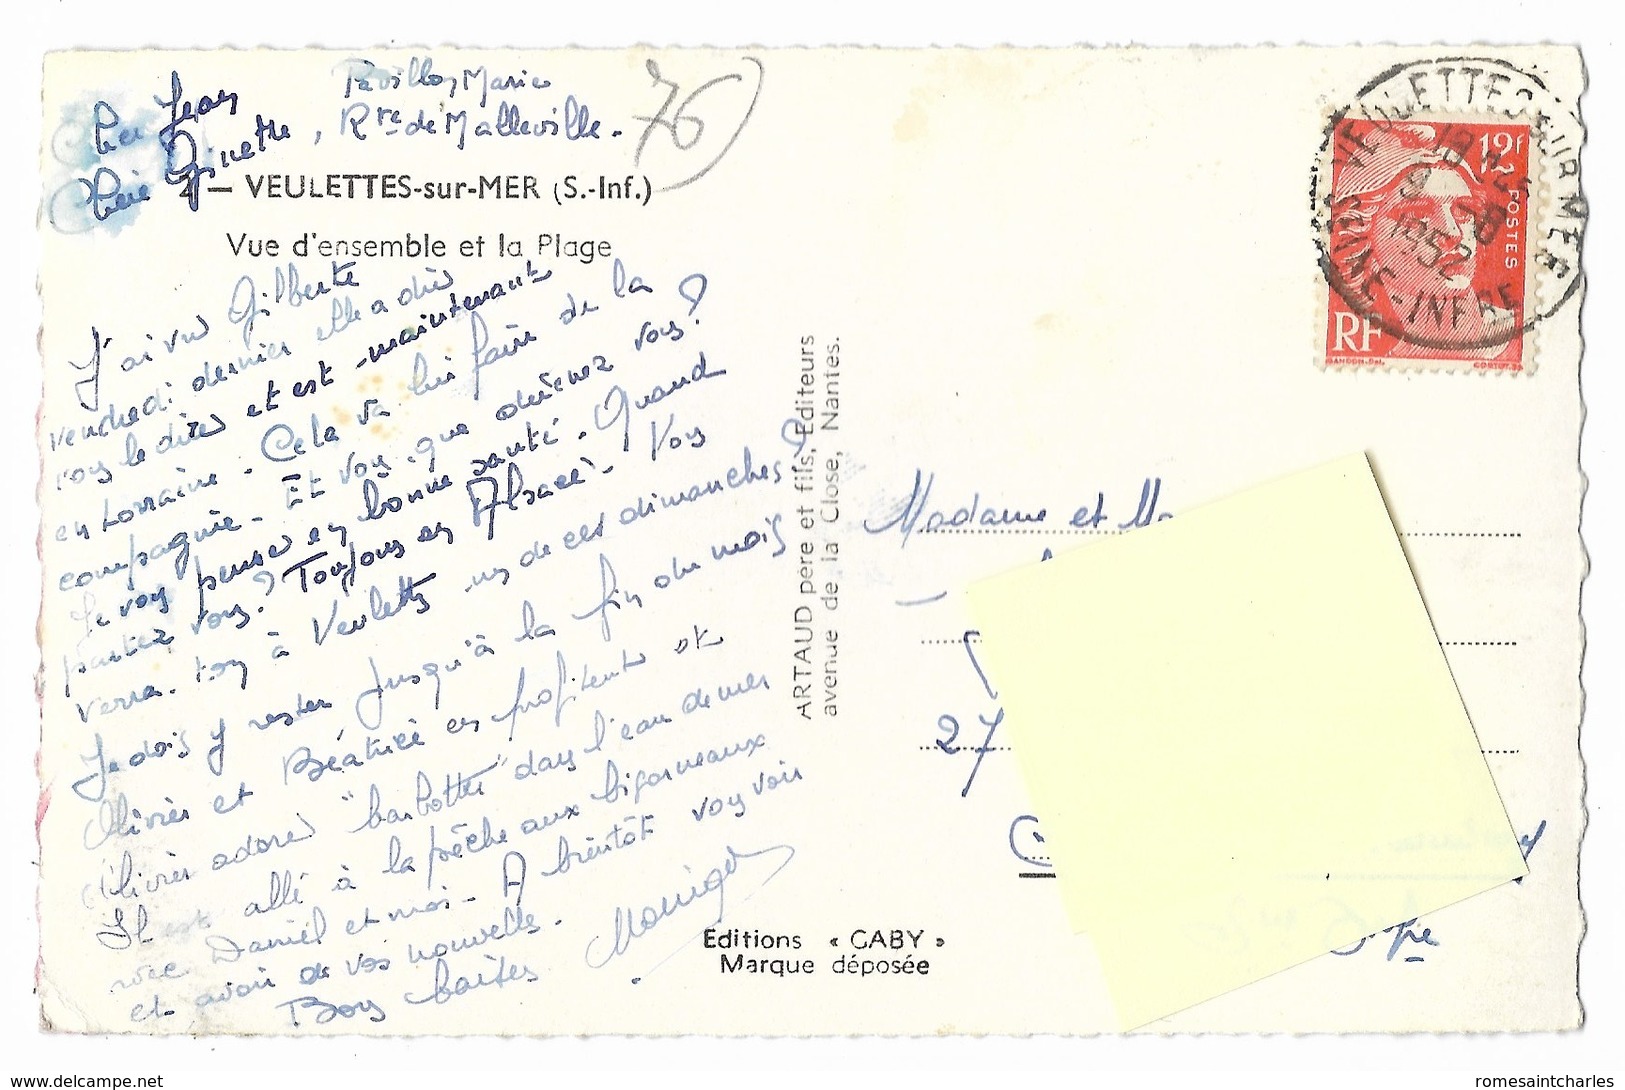 Pavillon Marie
Rte de Malleville.
76
Cher Jean
Chère Ginette,
2 — VEULETTES-sur-MER (S.-Inf.)
Vue d'ensemble et la Plage
J'ai vu Gilberte
vendredi dernier elle a dû
vous le dire et est maintenant
en Lorraine. Cela va lui faire de la
compagnie. Et vous que devenez vous?
Je vous pense en bonne santé. Quand
partez vous? Toujours en Alsace. Vous
verra-t-on à Veulettes un de ces dimanches?
Je dois y rester jusqu'à la fin du mois
Olivier et Béatrice en profitent et
Olivier adore "barbotter" dans l'eau de mer
Il est allé à la pêche aux bigorneaux
avec Daniel et moi. A bientôt vous voir
et avoir de vos nouvelles.
Bons baisers Monique
ARTAUD père et fils, Editeurs
avenue de la Close, Nantes.
Editions « GABY »
Marque déposée
VEULETTES SUR MER
18 H
1952
SEINE-INFRE
12f
POSTES
RF
GANDON-Del.
Madame et
27
romesaintcharles
www.delcampe.net